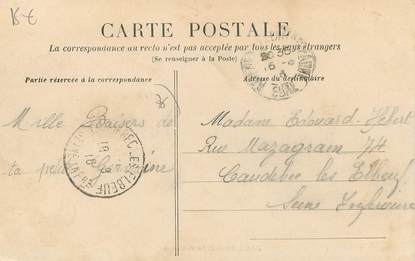 CARTE POSTALE
La correspondance au recto n'est pas acceptée par tous les pays étrangers
(Se renseigner à la Poste)
Partie réservée à la correspondance
Adresse du destinataire
Mille Baisers de
ta petite
Madame Edouard Hébert
Rue Mazagran 74
Caudebec les Elbeuf
Seine Inférieure